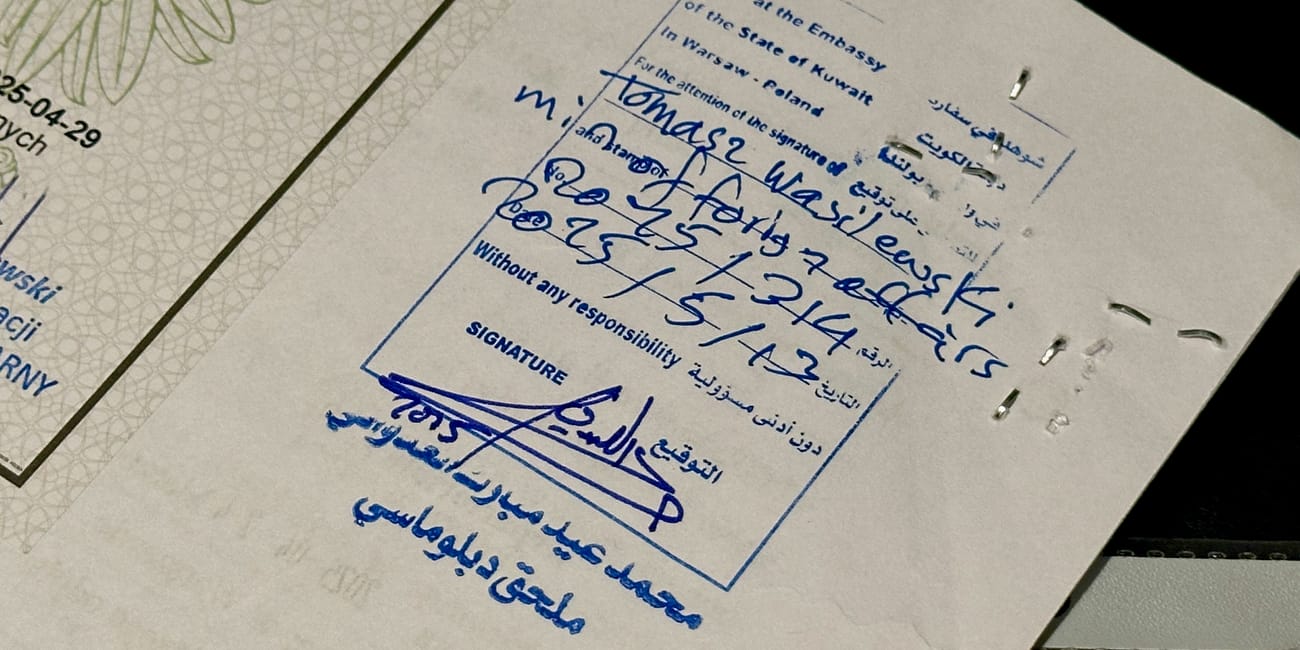 25-04-29
nych
wski
acji
ARNY
at the Embassy
of the State of Kuwait
In Warsaw - Poland
For the attention of the signature of
Tomasz Wasilewski
and stamp of
No
2025 / 314
Date
2025 / 5 / 13
Without any responsibility
SIGNATURE
في سفارة
الكويت
على توقيع
الرقم
التاريخ
دون أدنى مسؤولية
التوقيع
محمد عيد مبارك
ملحق دبلوماسي